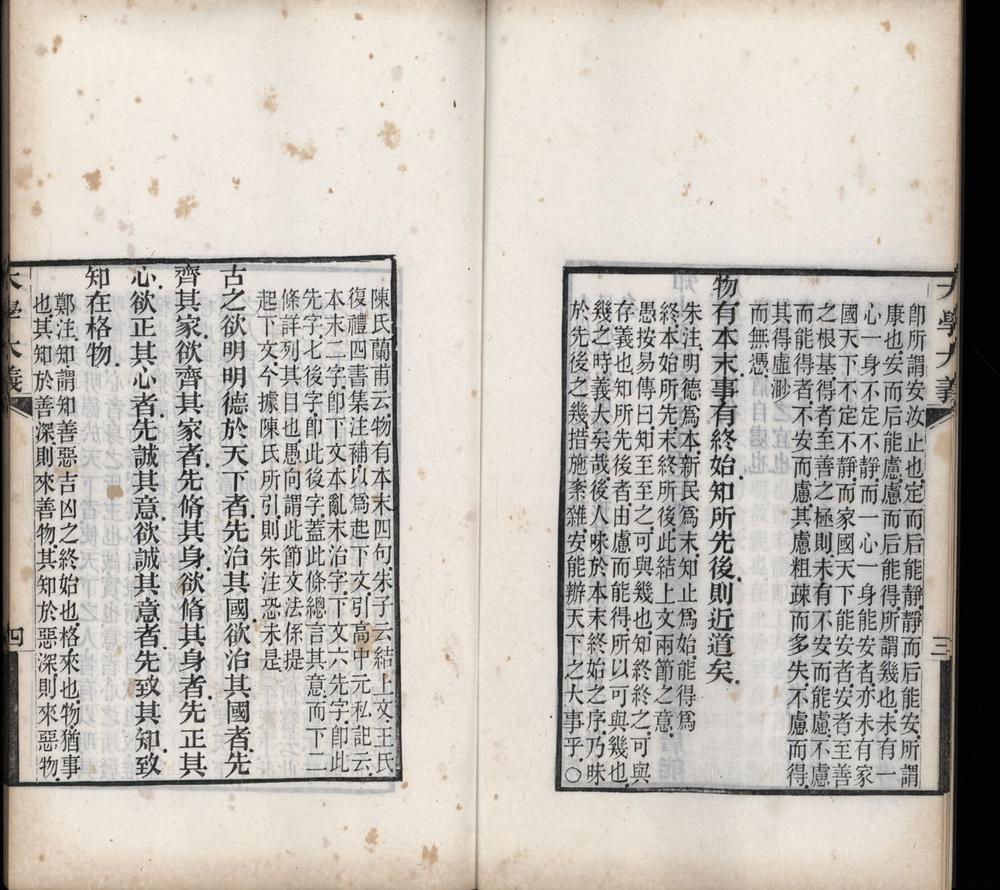 大學大義
三
卽所謂安汝止也.定而后能靜.靜而后能安.所謂
康也.安而后能慮.慮而后能得.所謂幾也.未有一
心一身不定不靜.而一心一身能安者.亦未有家
國天下不定不靜.而家國天下能安者.安者至善
之根基.得者至善之極則.未有不安而能慮.不慮
而能得者.不安而慮.其慮粗疎而多失.不慮而得.
其得虛渺而無憑.
物有本末.事有終始.知所先後.則近道矣.
朱注.明德爲本.新民爲末.知止爲始.能得爲
終.本始所先.末終所後.此結上文兩節之意.
愚按易傳曰.知至至之.可與幾也.知終終之.可與
存義也.知所先後者.由慮而能得.所以可與幾也.
幾之時義大矣哉.後人昧於本末終始之序.乃昧
於先後之幾.措施紊雜.安能辦天下之大事乎.〇
陳氏蘭甫云.物有本末四句.朱子云結上文.王氏
復禮四書集注補以爲起下文.引高中元私記云.
本末二字.卽下文本亂末治字.下文六先字.卽此
先字.七後字.卽此後字.蓋此條總言其意.而下二
條詳列其目也.愚向謂此節文法係提
起下文.今據陳氏所引.則朱注恐未是.
古之欲明明德於天下者.先治其國.欲治其國者.先
齊其家.欲齊其家者.先脩其身.欲脩其身者.先正其
心.欲正其心者.先誠其意.欲誠其意者.先致其知.致
知在格物.
鄭注.知謂知善惡吉凶之終始也.格.來也.物.猶事
也.其知於善深.則來善物.其知於惡深.則來惡物.
大學大義
四